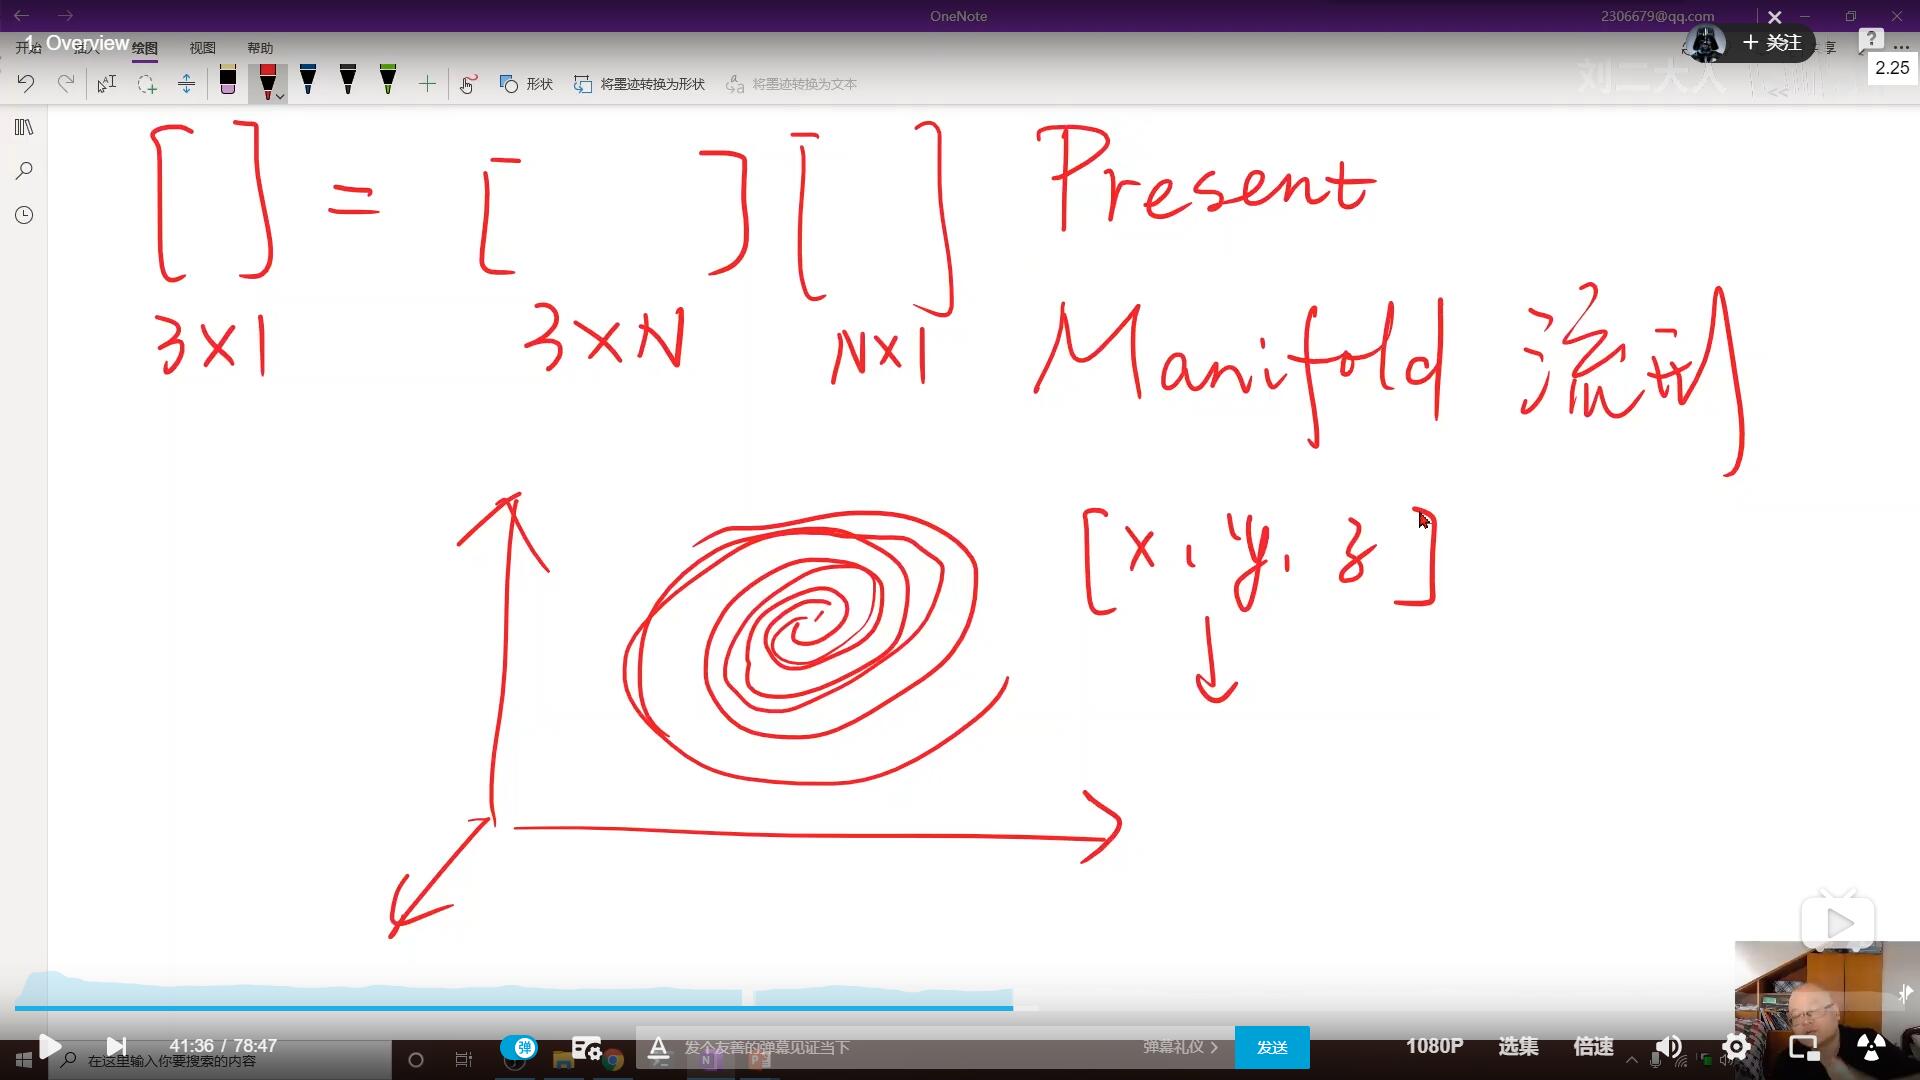 OneNote
2306679@qq.com
1. Overview
开始 插入 绘图 视图 帮助
+ 关注
享
2.25
形状 将墨迹转换为形状 将墨迹转换为文本
刘二大人
[ ] = [ ] [ ] Present
3×1 3×N N×1
Manifold 流形
[x, y, z]
41:36 / 78:47
弹
发个友善的弹幕见证当下
弹幕礼仪 >
发送
1080P 选集 倍速
在这里输入你要搜索的内容